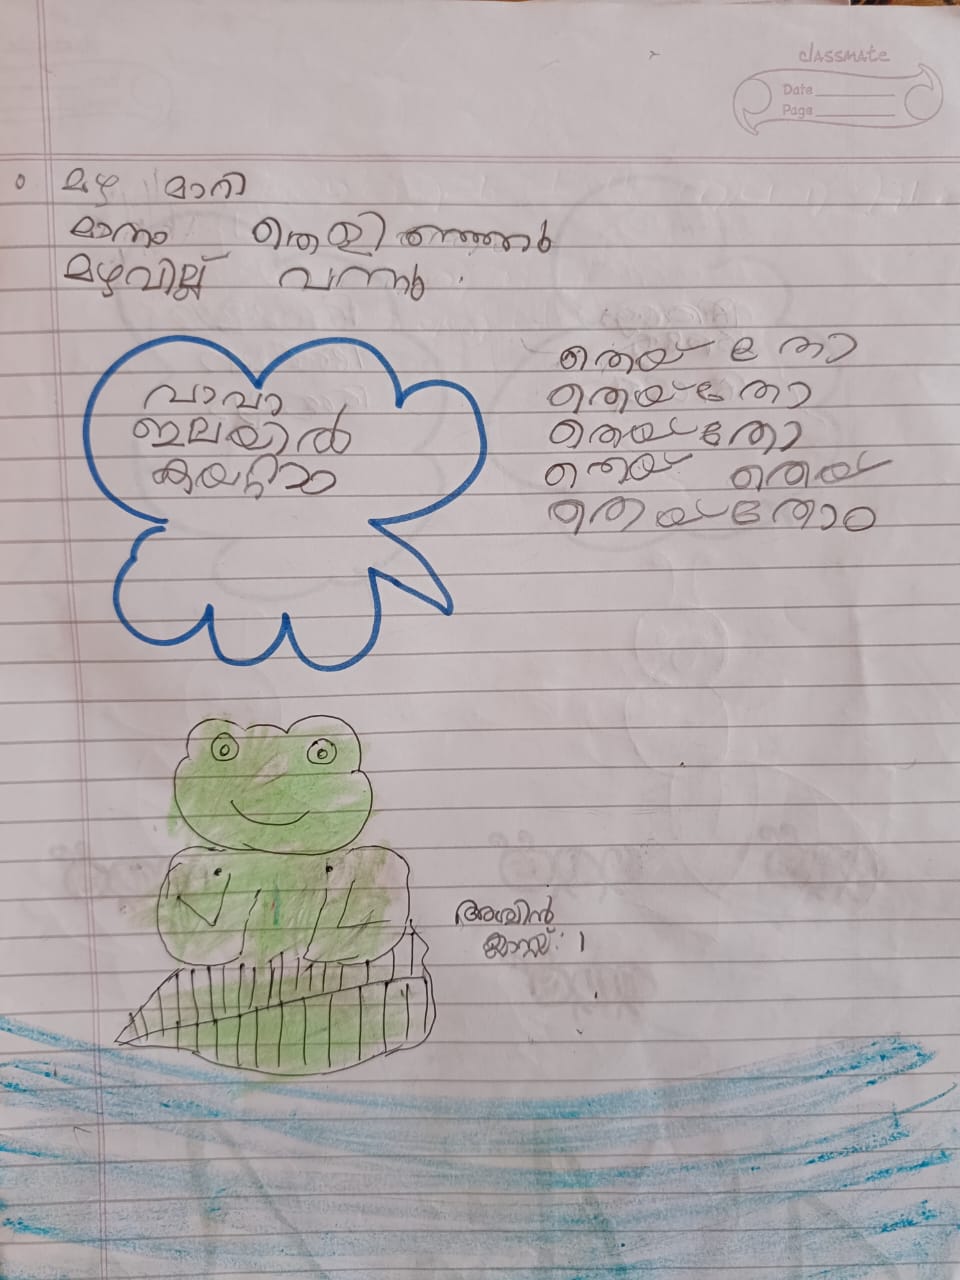 classmate
Date
Page
മഴ മാറി
മാനം തെളിഞ്ഞു
മഴവില്ല് വന്നു.
വാവാ
ഇലയിൽ
കയറ്റാം
തെയ് തോ
തെയ് തോ
തെയ് തോ
തെയ് തെയ്
തെയ് തോം
അശ്വിൻ
ക്ലാസ്സ്: 1